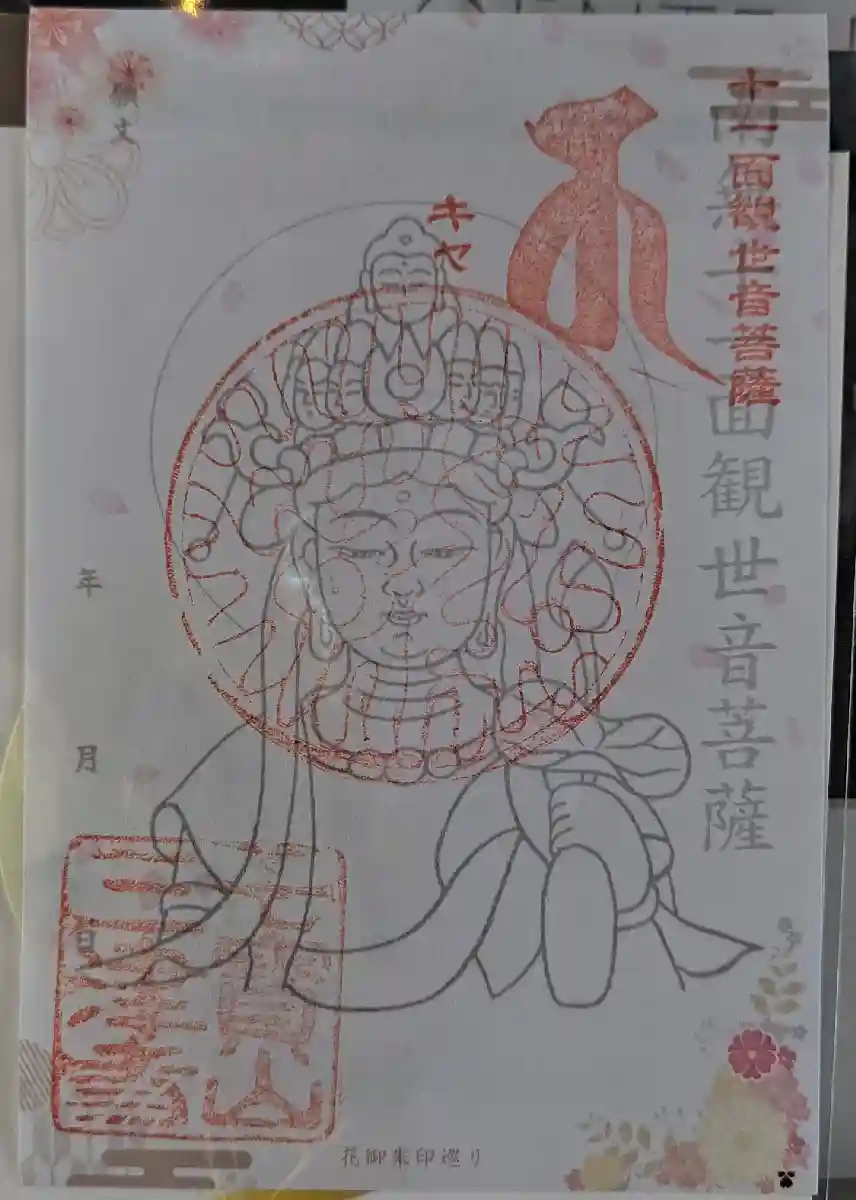 十一面観世音菩薩
南無十一面観世音菩薩
キャ
願文
年
月
日
花御朱印巡り